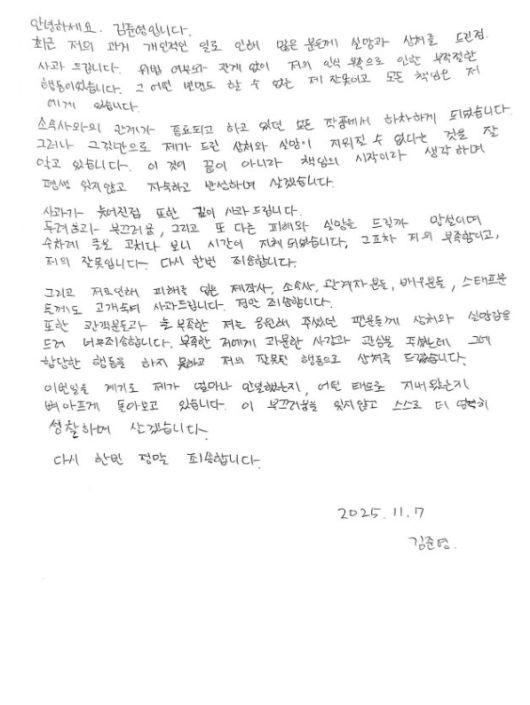 안녕하세요. 김준영입니다.
최근 저의 과거 개인적인 일로 인해 많은 분들께 실망과 상처를 드린점
사과 드립니다. 위법 여부와 관계 없이 저의 인식 부족으로 인한 부적절한
행동이었습니다. 그 어떤 변명도 할 수 없는 제 잘못이고 모든 책임은 저
에게 있습니다.
소속사와의 관계가 종료되고 하고 있던 모든 작품에서 하차하게 되었습니다.
그러나 그것만으로 제가 드린 상처와 실망이 지워질 수 없다는 것을 잘
알고 있습니다. 이 것이 끝이 아니라 책임의 시작이라 생각 하며
평생 잊지않고 자숙하고 반성하며 살겠습니다.
사과가 늦어진점 또한 깊이 사과드립니다.
두려움과 부끄러움, 그리고 또 다른 피해와 실망을 드릴까 망설이며
수차례 글을 고치다 보니 시간이 지체 되었습니다. 그조차 저의 부족함이고,
저의 잘못입니다. 다시 한번 죄송합니다.
그리고 저로인해 피해를 입은 제작사, 소속사, 관계자 분들, 배우분들, 스태프분
들께도 고개숙여 사과드립니다. 정말 죄송합니다.
또한 관객분들과 늘 부족한 저를 응원해 주셨던 팬분들께 상처와 실망감을
드려 너무죄송합니다. 부족한 저에게 과분한 사랑과 관심을 주셨는데 그에
합당한 행동을 하지 못하고 저의 잘못된 행동으로 상처를 드렸습니다.
이번일을 계기로 제가 얼마나 안일했는지, 어떤 태도로 지내왔는지
뼈아프게 돌아보고 있습니다. 이 부끄러움을 잊지않고 스스로 더 엄격히
성찰하며 살겠습니다.
다시 한번 정말 죄송합니다.
2025. 11. 7
김준영.